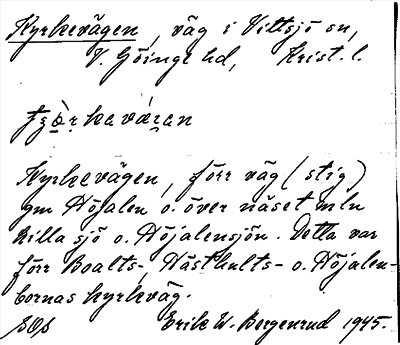 Kyrkevägen, väg i Vittsjö sn,
V. Göinge hd, Krist. l.
Kyrkevägen, förr väg (stig)
gm Höjalen o. över näset mln
Killa sjö o. Höjalensjön. Detta var
förr Boalts-, Hästhults- o. Höjalen-
bornas kyrkväg.
Erik W. Bergenrud 1945.